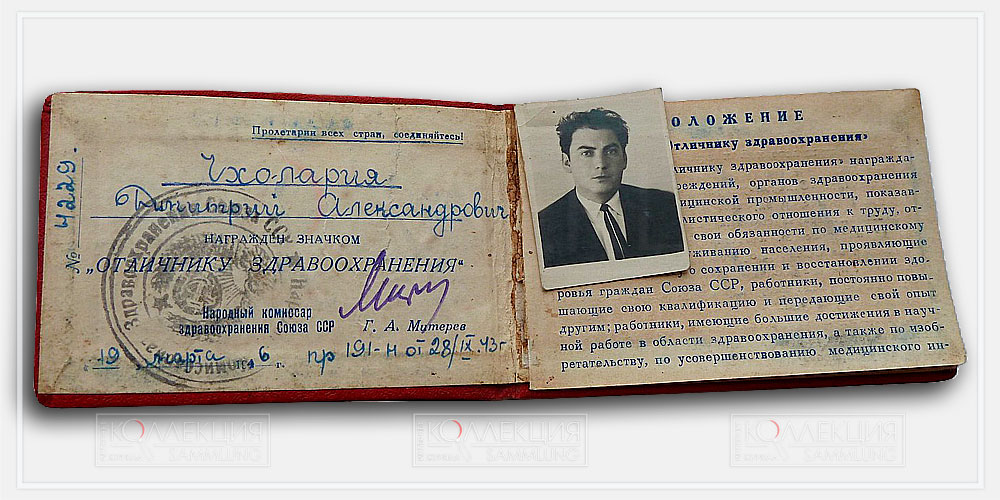 Пролетарии всех стран, соединяйтесь!
№ 4229.
Чхолария
Димитрий Александрович
НАГРАЖДЕН ЗНАЧКОМ
„ОТЛИЧНИКУ ЗДРАВООХРАНЕНИЯ“
Народный комиссар
здравоохранения Союза ССР
Г. А. Митерев
19 марта 6 г.
пр 191-н от 28/IX.43г.
ОЛОЖЕНИЕ
тличнику здравоохранения»
личнику здравоохранения» награжда-
реждений, органов здравоохранения
ицинской промышленности, показав-
листического отношения к труду, от-
свои обязанности по медицинскому
уживанию населения, проявляющие
о сохранении и восстановлении здо-
ровья граждан Союза ССР, работники, постоянно повы-
шающие свою квалификацию и передающие свой опыт
другим; работники, имеющие большие достижения в науч-
ной работе в области здравоохранения, а также по изоб-
ретательству, по усовершенствованию медицинского ин-
КОЛЛЕКЦИЯ
SAMMLUNG
КОЛЛЕКЦИЯ
SAMMLUNG
КОЛЛЕКЦИЯ
SAMMLUNG